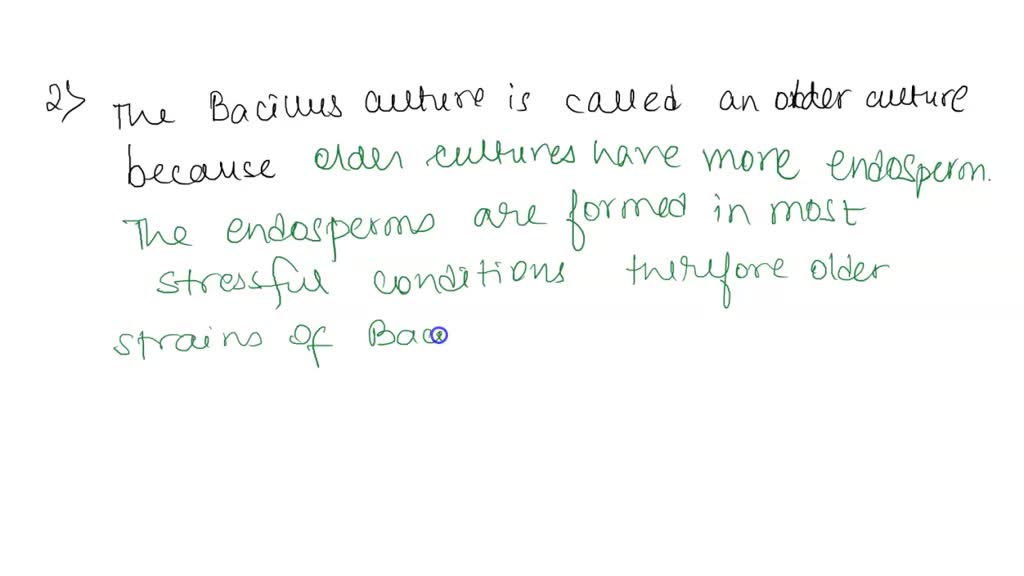 2) The Bacillus culture is called an older culture
because older cultures have more endosperm.
The endosperms are formed in most
stressful conditions therefore older
strains of Bac